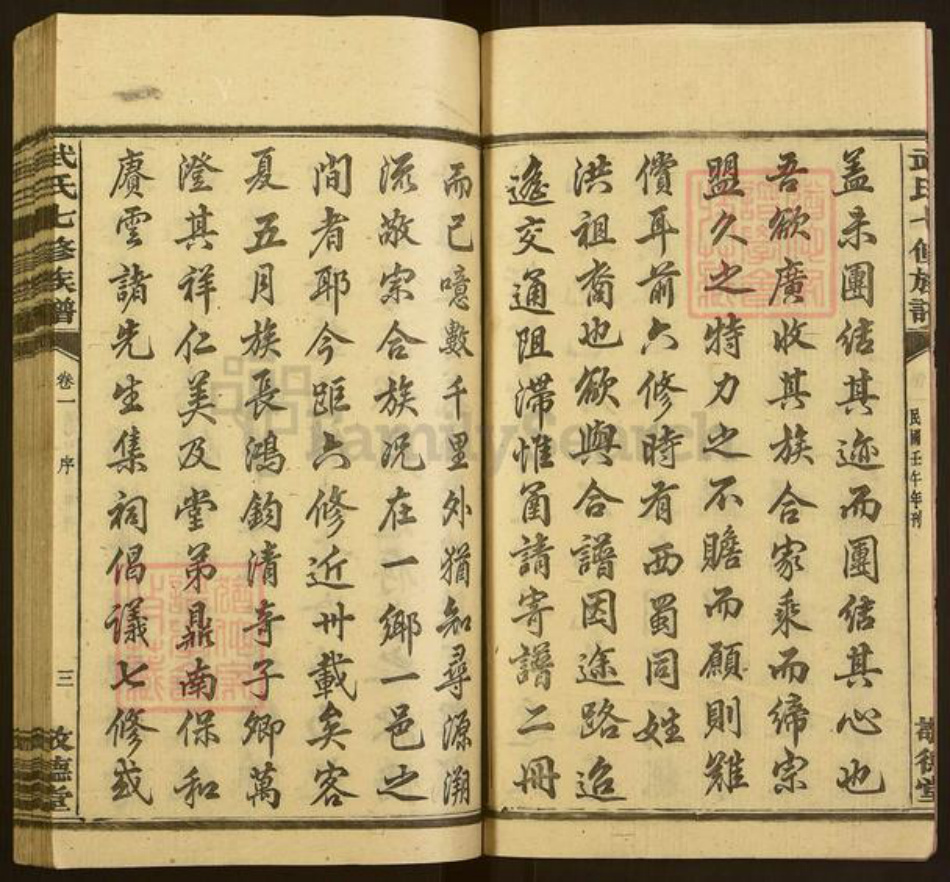 民國壬午年刊
蓋未團結其迹而團結其心也
吾欲廣收其族合家乘而締宗
盟久之特力之不贍而願則難
償耳前六修時有西蜀同姓
洪祖裔也欲與合譜因途路迢
遙交通阻滯惟函請寄譜二冊
而已噫數千里外猶知尋源溯
流敬宗合族況在一鄉一邑之
間者耶今距六修近卅載矣客
夏五月族長鴻鈞清奇子卿萬
澄其祥仁美及堂弟鼎南保和
賡雲諸先生集祠倡議七修或
武氏七修族譜
卷一
序
三
FamilySearch